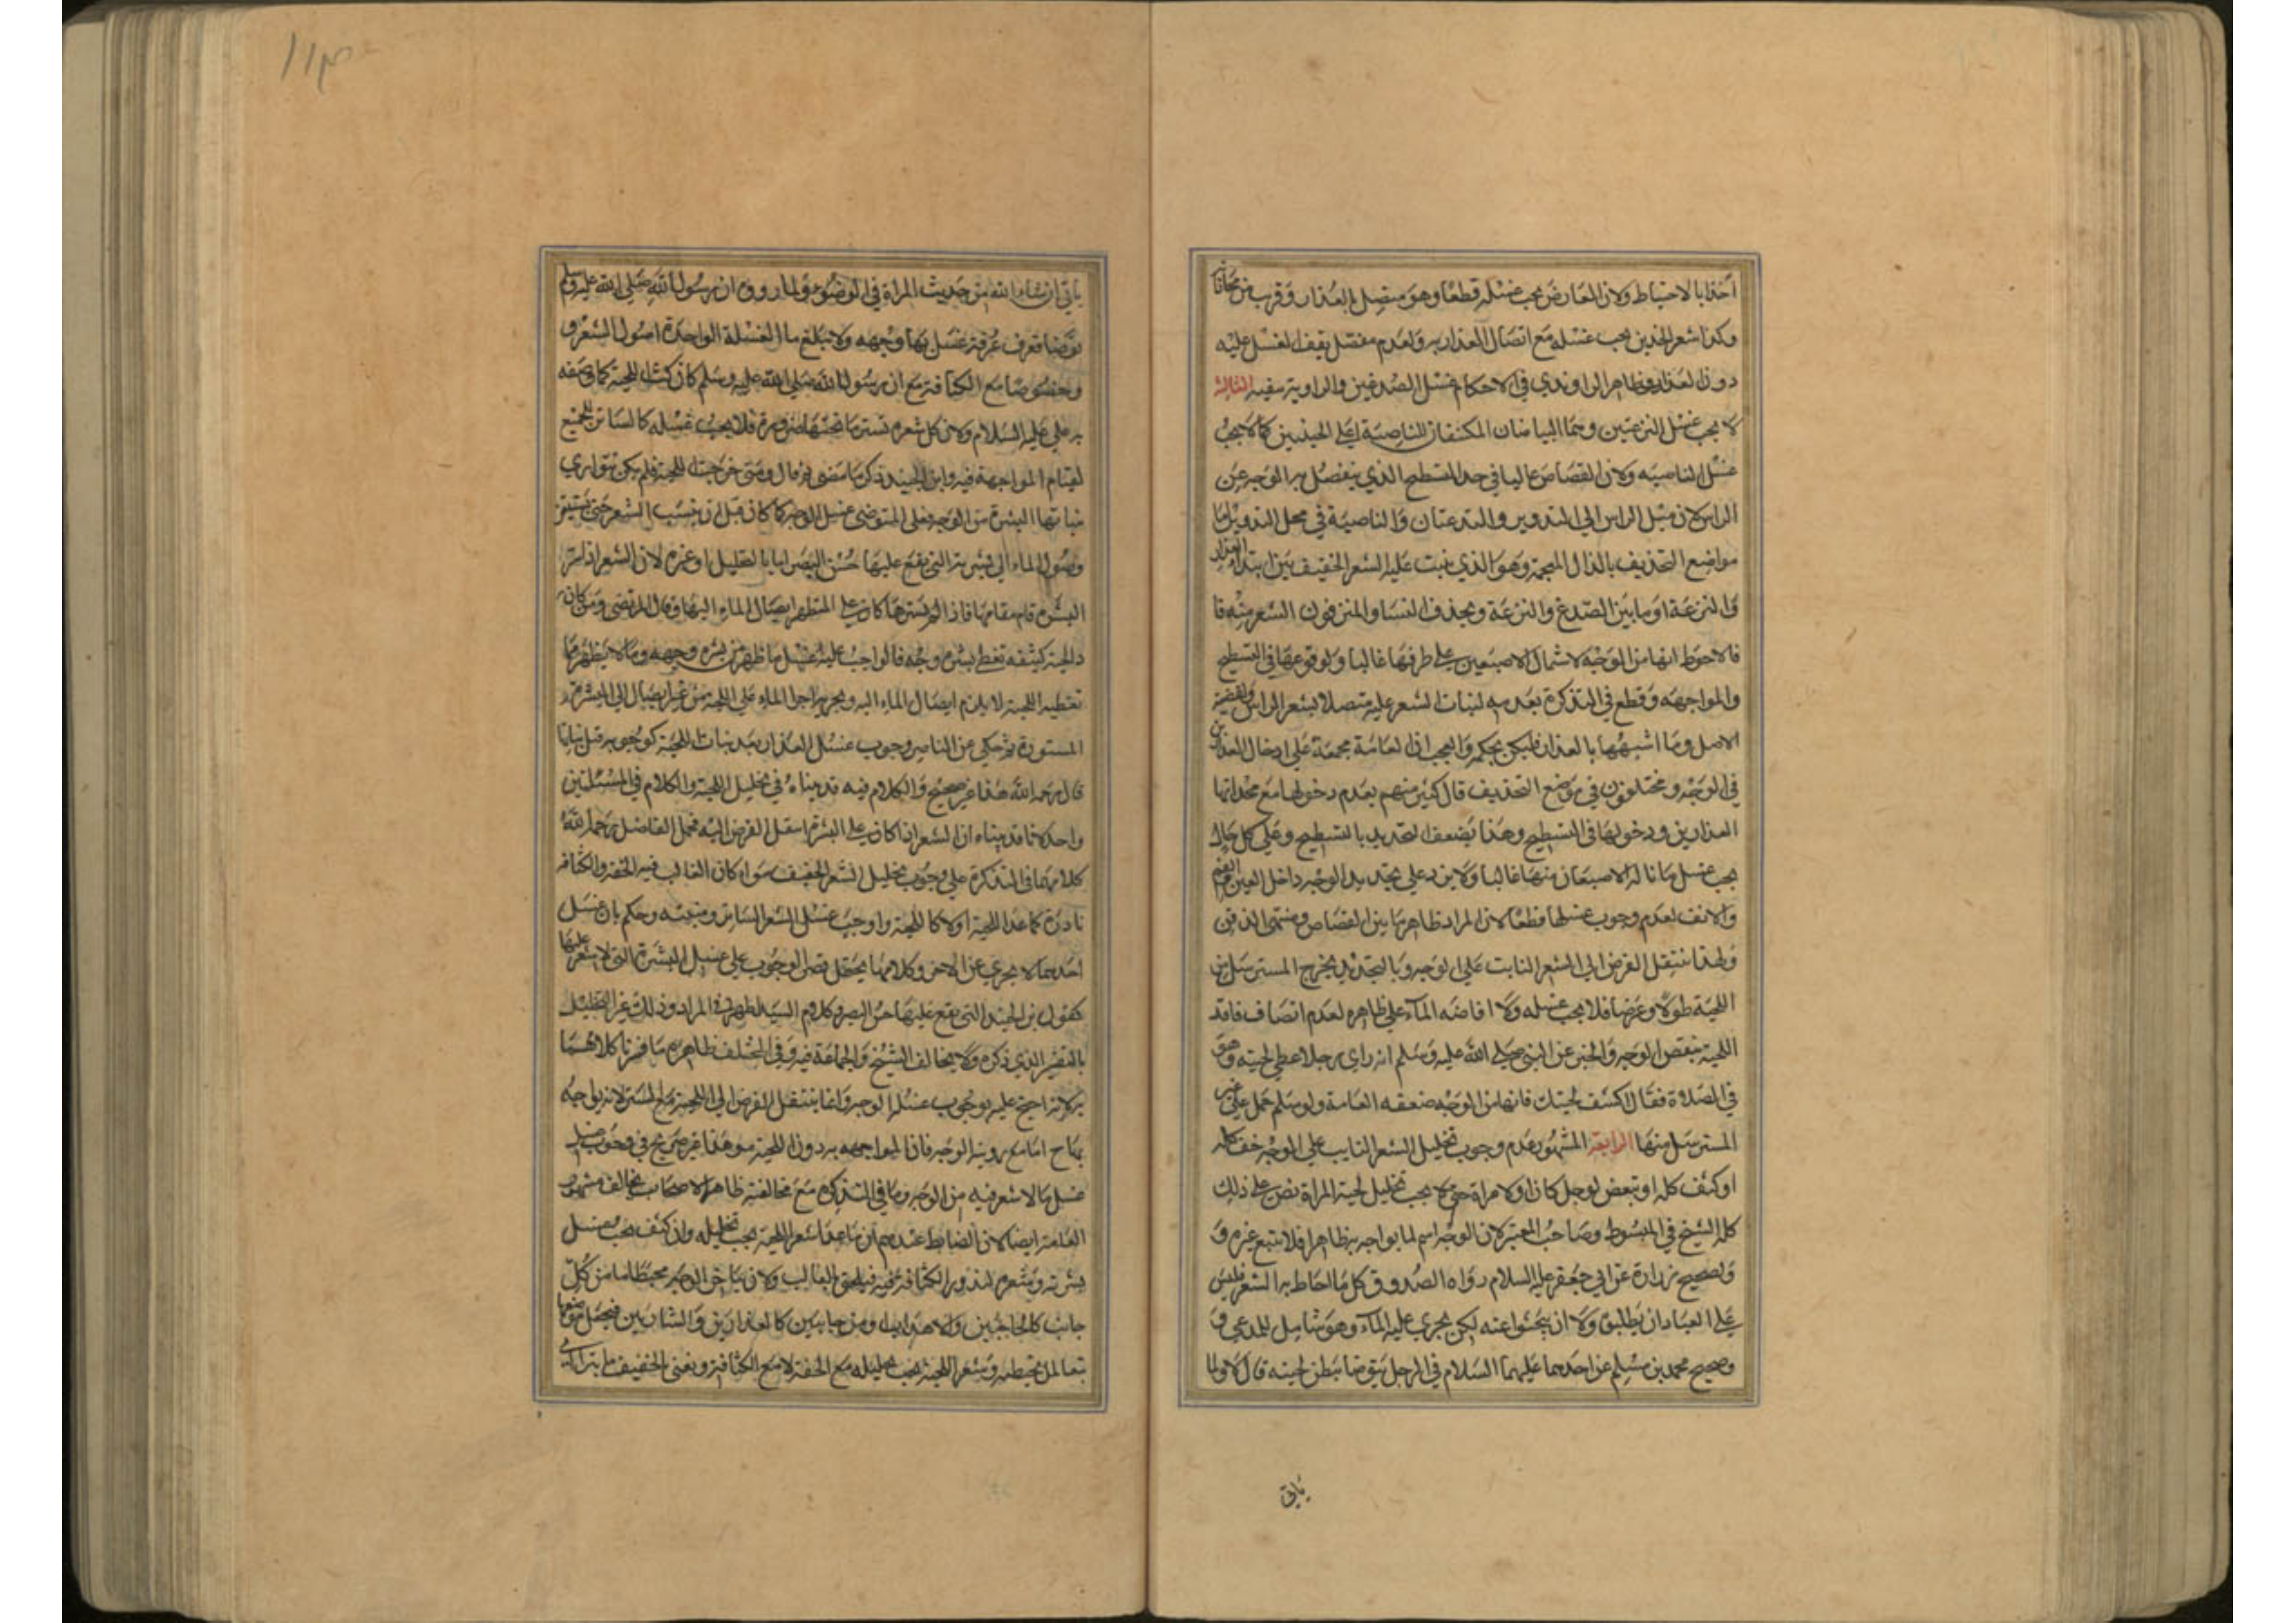 اخذا بالاحتياط ولان العارض يجب غسله قطعا وهو متصل بالعذار وقرب من محاذاة
وكذا شعر الخدين يجب غسله مع اتصال العذار به ولعدم مفصل يقف الغسل عليه
دون العذار وظاهر الراوندي في الاحكام غسل الصدغين والرواية تنفيه الثالثة
لا يجب غسل النزعتين وهما البياضان المكتنفان للناصية اعلى الجبينين كما لا يجب
غسل الناصيه ولان القصاص غالبا في حد التسطيح الذي ينفصل به الوجه عن
الراس لان ميل الراس الى التدوير والنزعتان والناصية في محل التدوير اما
مواضع التحذيف بالذال المعجمة وهو الذي ينبت عليه الشعر الخفيف بين ابتداء العذار
والنزعة او ما بين الصدغ والنزعة ويحذف النسا والمترفون الشعر منه
فالاحوط انها من الوجه لاشتمال الاصبعين على طرفها غالبا ولوقوعها في التسطيح
والمواجهه وقطع في التذكرة بعدمه لنبات الشعر عليه متصلا بشعر الراس ولقضية
الاصل وما اشبهها بالعذار فليكن بحكمه والعجب ان العامة مجمعة على ادخال العذارين
في الوجه ومختلفون في موضع التحذيف قال كثير منهم بعدم دخولها مع محذاتها
العذارين ودخولها في التسطيح وهذا يضعف التحديد بالتسطيح وعلى كل حال
يجب غسل ما ناله الاصبعان منها غالبا ولا يرد على تحديد الوجه داخل العين والفم
والانف لعدم وجوب غسلها قطعا لان المراد ظاهر ما بين القصاص ومنتهى الذقن
ولهذا ينتقل الفرض الى الشعر النابت على الوجه وبالتحديد يخرج المسترسل من
اللحية طولا وعرضا فلا يجب غسله ولا افاضة الماء على ظاهره لعدم اتصاف فاقد
اللحية بنقص الوجه والخبر عن النبي صلى الله عليه وسلم انه راى رجلا غطى لحيته وهو
في الصلاة فقال اكشف لحيتك فانها من الوجه ضعفه العامة ولو سلم حمل على غير
المسترسل منها الرابعة المشهور عدم وجوب تخليل الشعر النابت على الوجه خف كله
او كثف كله او تبعض لرجل كان او لامراة حتى لا يجب تخليل لحية المراة نص على ذلك
كله الشيخ في المبسوط وصاحب المعتبر لان الوجه اسم لما يواجه به ظاهرا فلا يتبع غيره و
ولصحيح زرارة عن ابي جعفر عليه السلام رواه الصدوق كل ما احاط به الشعر فليس
على العباد ان يطلبوه ولا ان يبحثوا عنه لكن يجري عليه الماء وهو شامل للمدعى و
وصحيح محمد بن مسلم عن احدهما عليهما السلام في الرجل يتوضا يبطن لحيته قال لا ولما
ياتي
ياتي ان شاء الله من حديث المراة في الوضوء ولما روي ان رسول الله صلى الله عليه وسلم
توضا فغرف غرفة غسل بها وجهه ولا تبلغ ماء الغسلة الواحدة اصول الشعر و
وخصوصا مع الكثافة مع ان رسول الله صلى الله عليه وسلم كان كث اللحية كما وصفه
به علي عليه السلام ولان كل شعره تستر ما تحتها ضرورة فلا يجب غسله كالساتر للجميع
لقيام المواجهة فيه وابن الجنيد ذكر ما مضى ثم قال ومتى خرجت اللحية فلم يكن تتوارى
بنباتها البشرة من الوجه فعلى المتوضي غسل الوجه كما كان قبل ان ينبت الشعر حتى يستيقن
وصول الماء الى بشرته التي يقع عليها حس البصر اما بالتخليل او غيره لان الشعر اذا ستر
البشرة قام مقامها فاذا لم يسترها كان على المتطهر ايصال الماء اليها وقال المرتضى ومن كان
ذا لحية كثيفه تغطي بشرة وجهه فالواجب عليه غسل ما ظهر من بشرة وجهه وما لا يظهر مما
تغطيه اللحية لا يلزم ايصال الماء اليه ويجزيه اجراء الماء على اللحية من غير ايصال الى البشرة
المستورة ثم حكى عن الناصر وجوب غسل العذار بعد نبات اللحية كوجوبه قبل نباتها
قال رحمه الله هذا غير صحيح والكلام فيه قد بيناه في تخليل اللحية والكلام في المسئلتين
واحد لانا قد بينا ان الشعر اذا كان على البشرة انتقل الفرض اليه فحمل الفاضل رحمه الله
كلامهما في التذكرة على وجوب تخليل الشعر الخفيف سواء كان الغالب فيه الخفة والكثافة
نادرة كما عدا اللحية اولا كاللحية واوجب غسل الشعر الساتر ومنبته وحكم بان غسل
احدهما لا يجزي عن الاخر وكلامهما يحتمل قصر الوجوب على غسل البشرة التي لا شعر عليها
كقول ابن الجنيد التي يقع عليها حس البصر وكلام السيد اظهر في المراد وذلك غير التخليل
بالتفسير الذي ذكره ولا يخالف الشيخ والجماعة فيه وفي المختلف ظاهره ما فسرنا كلامهما
به لانه احتج عليه بوجوب غسل الوجه وانما ينتقل الفرض الى اللحية مع الستر لانه يواجه
اما مع روية الوجه فان المواجهه به دون اللحية وهذا غير صريح في وجوب
غسل ما لا شعر فيه من الوجه وما في التذكره مع مخالفته ظاهر الاصحاب يخالف مشهور
العامة ايضا لان الضابط عندهم ان ما عدا شعر اللحية يجب تخليله وان كثف يجب غسل
بشرته وشعره لندور الكثافة فيه فيلحق بالغالب ولان بياض الوجه محيط اما من كل
جانب كالحاجبين والاهداب او من جانبين كالعذارين والشاربين فيجعل موضعها
تبعا لما يحيط به وشعر اللحية يجب تخليله مع الخفة لا مع الكثافة ونعني بالخفيف ما يتراءى